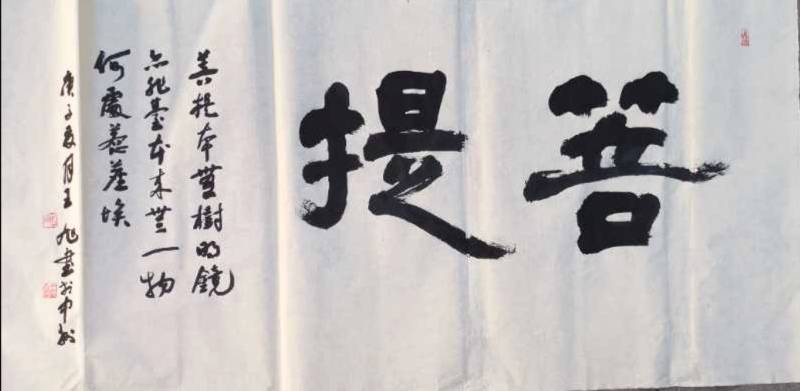 菩提
菩提本無樹明鏡
亦非臺本来無一物
何處惹塵埃
庚子夏月王旭書於中州